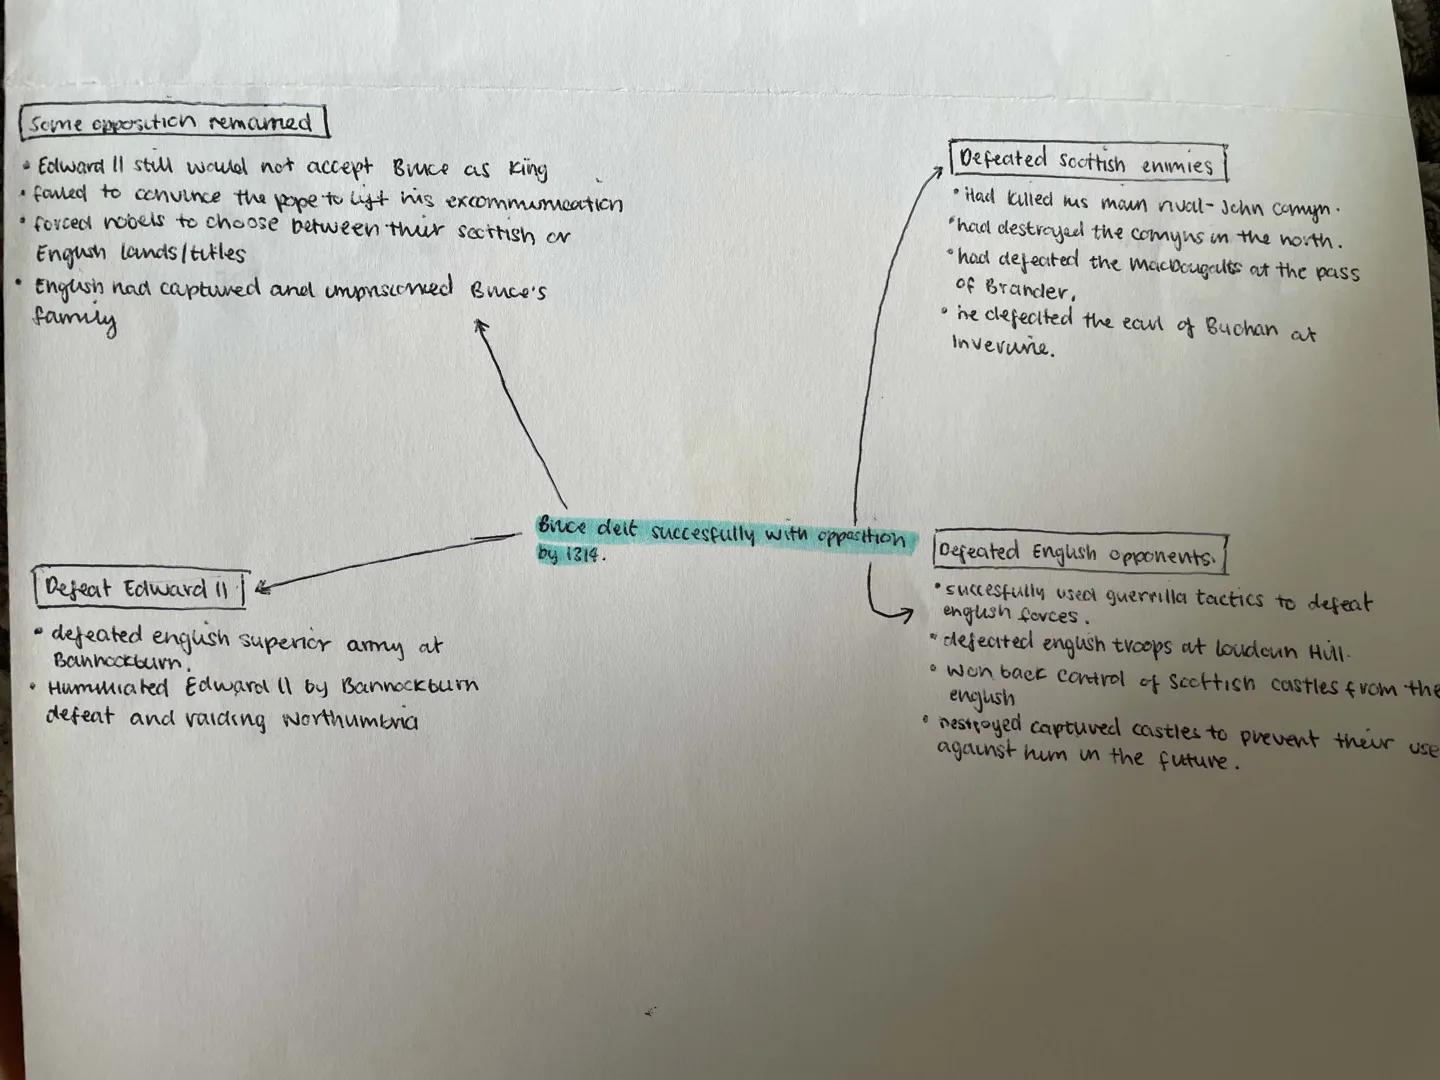 Some opposition remained
• Edward II still would not accept Bruce as King
• failed to convince the pope to lift his excommunication
• forced nobels to choose between their scottish or
English lands/titles
• English had captured and imprisoned Bruce's
family
Defeated Scottish enimies
• Had killed his main rival - John Comyn.
• had destroyed the comyns in the north.
• had defeated the MacDougalls at the pass
of Brander.
• he defeated the earl of Buchan at
Inverurie.
Bruce delt succesfully with opposition
by 1314.
Defeat Edward II
• defeated english superior army at
Bannockburn.
• Humiliated Edward II by Bannockburn
defeat and raiding Northumbria
Defeated English opponents.
• succesfully used guerrilla tactics to defeat
english forces.
• defeated english troops at loudoun Hill.
• won back control of Scottish castles from the
english
• Destroyed captured castles to prevent their use
against him in the future.